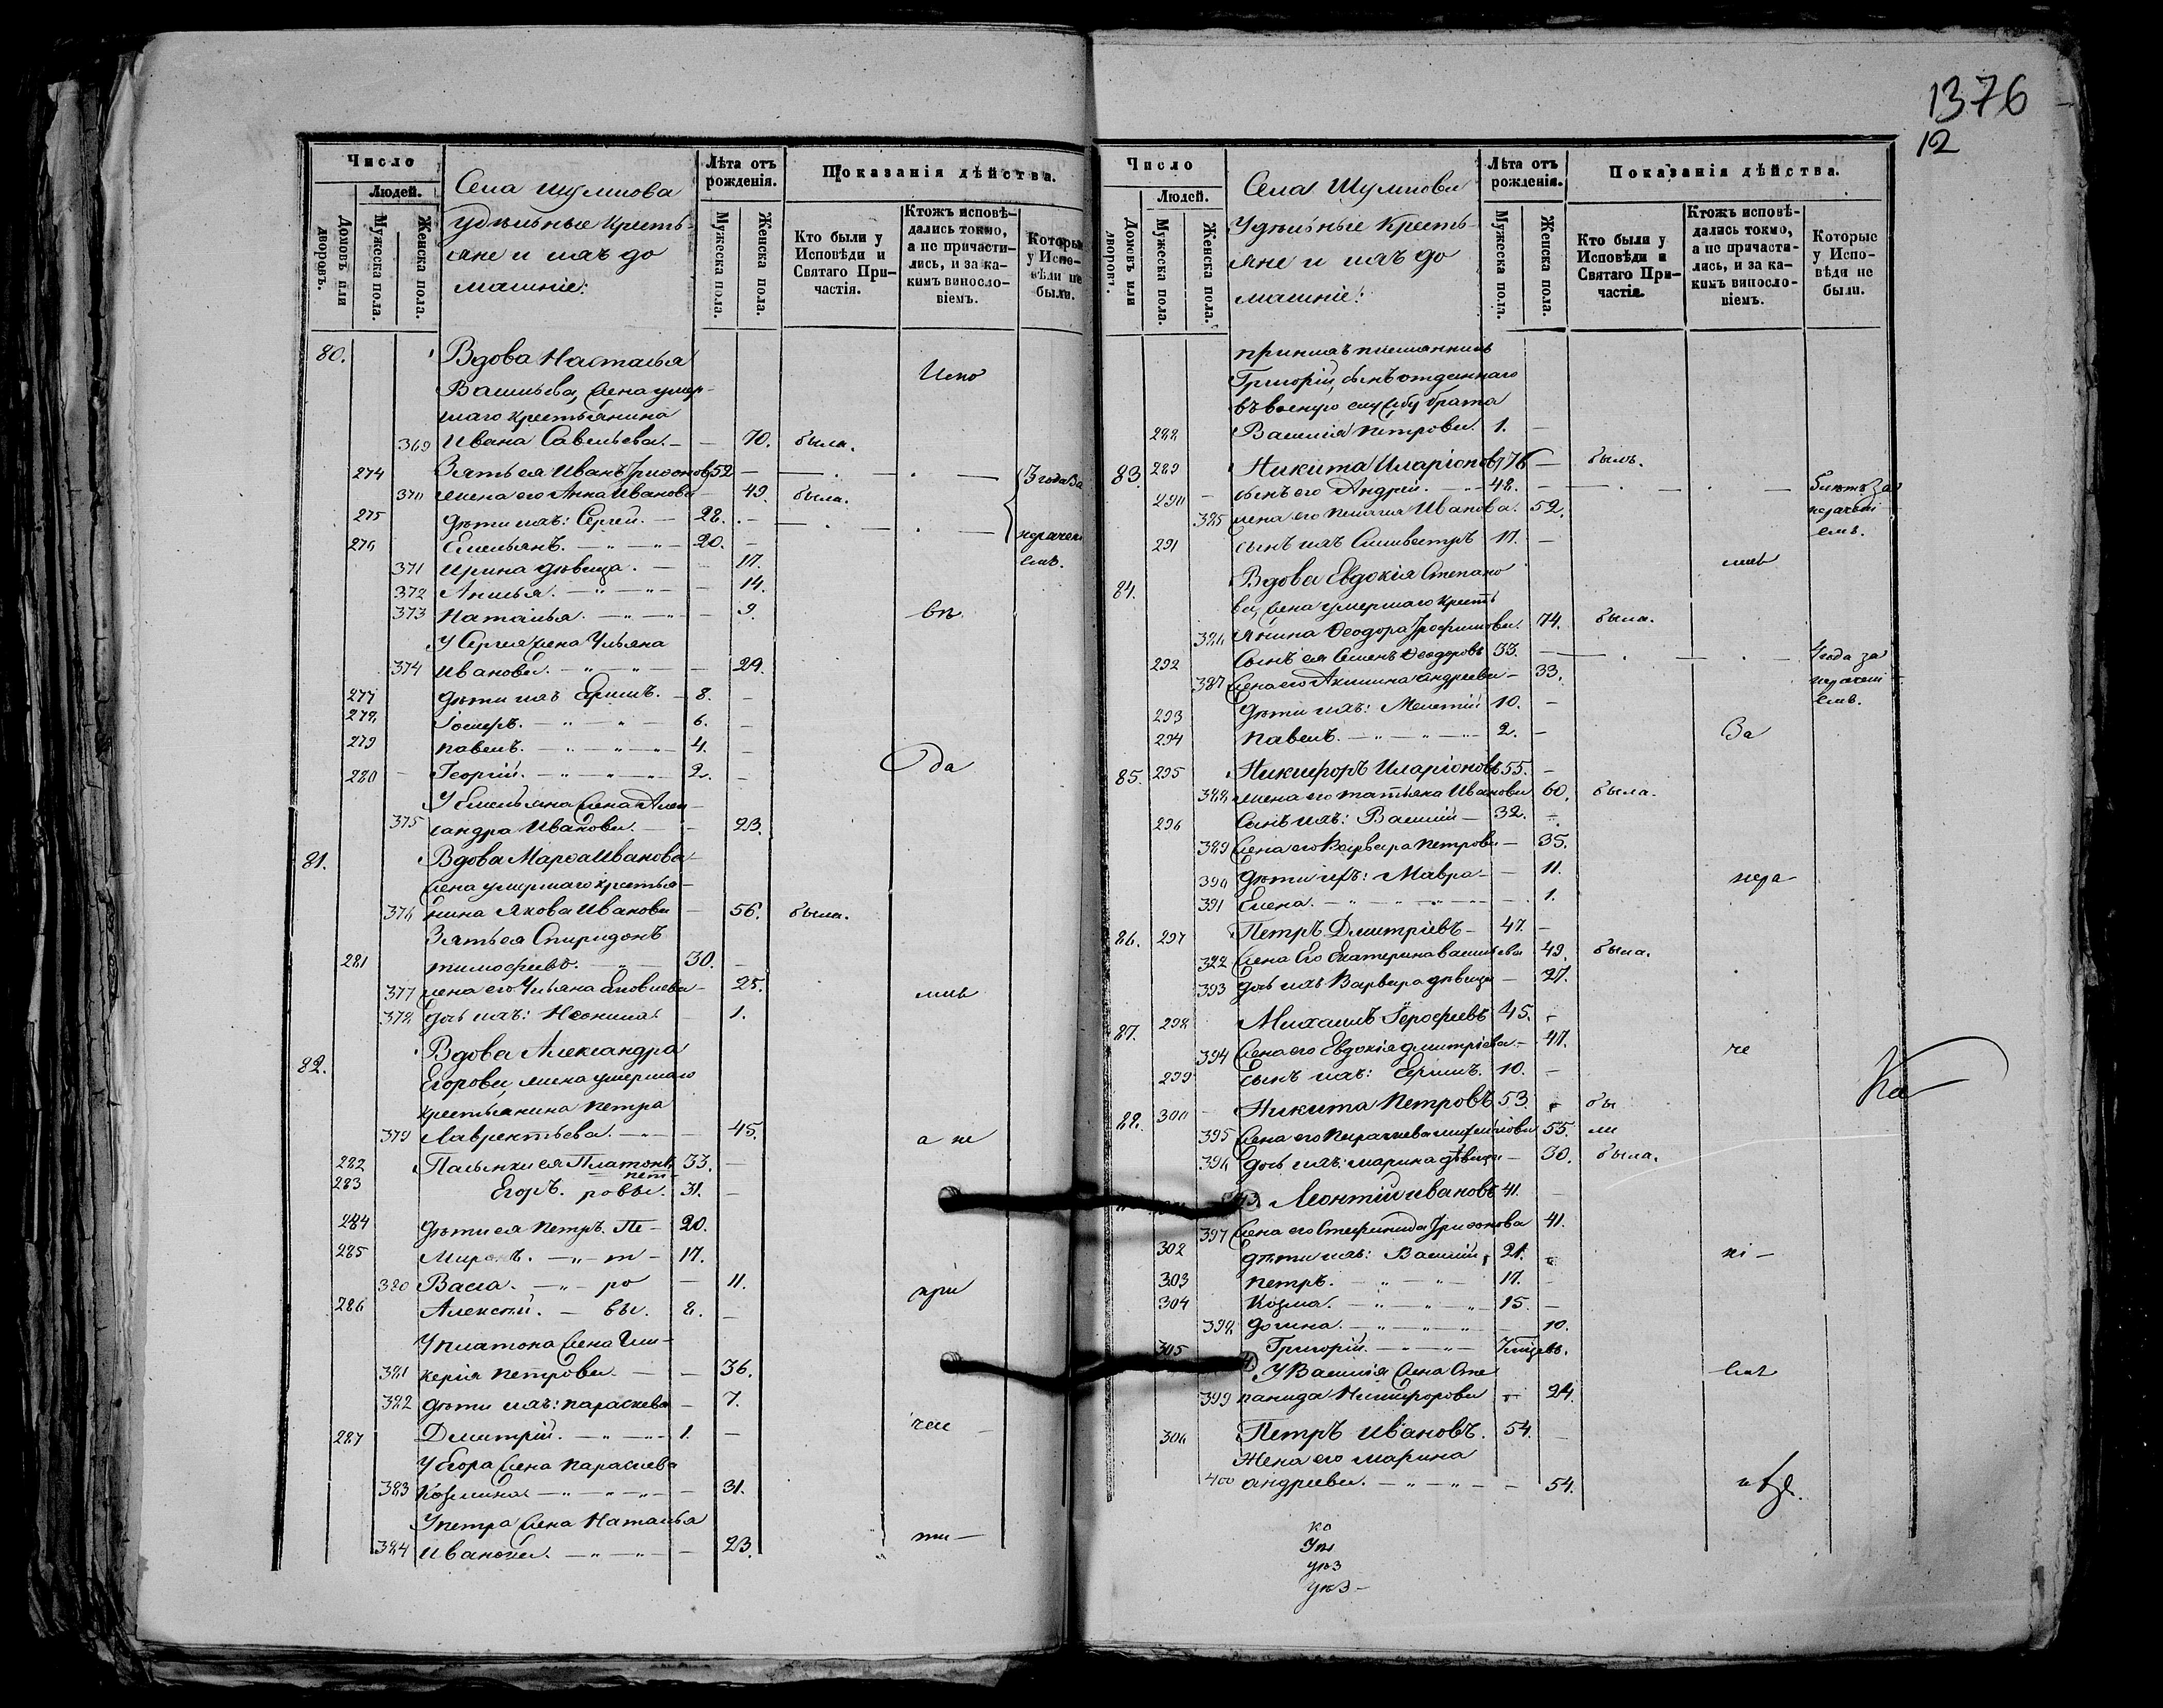 1376
12
Число
Людей.
Домовъ или дворовъ.
Мужеска пола.
Женска пола.
Села Шумнова
Удѣльные Кресть-
яне и ихъ до
машніе:
Лѣта отъ рожденія.
Мужеска пола.
Женска пола.
Показанія дѣйства.
Кто были у Исповѣди и Святаго При-частія.
Ктожъ исповѣ-дались токмо, а не причасти-лись, и за ка-кимъ винослo-віемъ.
Которые у Испо-вѣди не были.
80. Вдова Наталья
Васильева, жена умер-
шаго крестьянина Испо
369 Ивана Савельева. — — 70. была.
274 Зять ея Иванъ Трифоновъ 52 — 3 года за
370 жена его Анна Иванова — 49. была.
275 дѣти ихъ: Сергѣй. — 28. — нерачені
276 Емельянъ. — 20. — емъ.
371 Ирина дѣвица. — 17.
372 Анисья. — 14.
373 Наталья. — 9. вѣ
У Сергія жена Ульяна
374 Иванова. — 29.
277 дѣти ихъ Ермилъ. — 8. —
278 Іосифъ. — 6. —
279 Павелъ. — 4. —
280 Георгій. — 2. — да
У Емельяна жена Алек-
375 сандра Иванова. — 23.
81. Вдова Марѳа Иванова
жена умершаго крестья-
376 нина Якова Иванова — 56. была.
Зять ея Спиридонъ
281 Тимофеевъ. — 30. —
377 жена его Ульяна Яковлева — 25. лись
378 дочь ихъ: Неонила — 1.
82. Вдова Александра
Егорова, жена умершаго
крестьянина Петра
379 Лаврентьева. — 45. а не
282 Пасынки ея Платонъ 33. —
Пет-
283 Егоръ. ровы. 31. —
284 дѣти ея Петръ. Пе — 20.
285 Миронъ. — т — 17.
380 Васса. — ро — 11. при
286 Алексѣй. — вы. 8. —
У Платона жена Гли-
381 керія Петрова. — 36.
382 дѣти ихъ: Параскева — 7.
287 Дмитрій. — 1. — час
У Егора жена Параскева
383 Козмина — 31.
У Петра жена Наталья
384 Иванова. — 23. ти —
Число
Людей.
Домовъ или дворовъ.
Мужеска пола.
Женска пола.
Села Шумнова
Удѣльные Кресть-
яне и ихъ до
машніе:
Лѣта отъ рожденія.
Мужеска пола.
Женска пола.
Показанія дѣйства.
Кто были у Исповѣди и Святаго При-частія.
Ктожъ исповѣ-дались токмо, а не причасти-лись, и за ка-кимъ винослo-віемъ.
Которые у Испо-вѣди не были.
Григорій, сынъ отданнаго
въ военую службу брата
288 Василія Петрова. 1. —
83. 289 Никита Иларіоновъ 76 — былъ.
290 сынъ его Андрей. — 48. —
385 жена его Пелагія Иванова. 52. нерачені
291 сынъ ихъ Сильвестръ 17. — емъ.
лись
84. Вдова Евдокія Степано
ва, жена умершаго кресть
386 янина Ѳеодора Трофимова. 74. была.
292 Сынъ ея Семенъ Ѳеодоровъ 33. — 4 года за
387 жена его Акилина Андреева — 33. нерачені
293 дѣти ихъ: Мелетій 10. — емъ.
294 Павелъ. — 2. — За
85. 295 Никифоръ Иларіоновъ 55. —
388 жена его Татьяна Иванова 60. была.
296 Сынъ ихъ: Василій — 32. —
389 жена его Варвара Петрова — 35.
390 дѣти ихъ: Мавра — 11. нера
391 Елена. — 1.
86. 297 Петръ Дмитріевъ — 47. —
392 жена его Екатерина Васильева 49. была.
393 дочь ихъ Варвара дѣвица — 27.
87. 298 Михаилъ Ерофѣевъ 45. —
394 жена его Евдокія Дмитріева — 47. че
299 сынъ ихъ: Ермилъ. 10. —
Ка
88. 300 Никита Петровъ 53. — бы
395 жена его Параскева 55. ли
396 дочь ихъ: Марина дѣвица — 30. была.
Леонтій Ивановъ 41. —
397 жена его Стефанида Трифонова 41.
302 дѣти ихъ: Василій, 21. — ні —
303 Петръ. — 17. —
304 Козма. — 15. —
398 — 10.
305 Григорій.
У Василія жена Сте емъ
399 панида Никифорова — 24.
306 Петръ Ивановъ. 54. —
Жена его Марина
400 Андреева. — 54.
ко